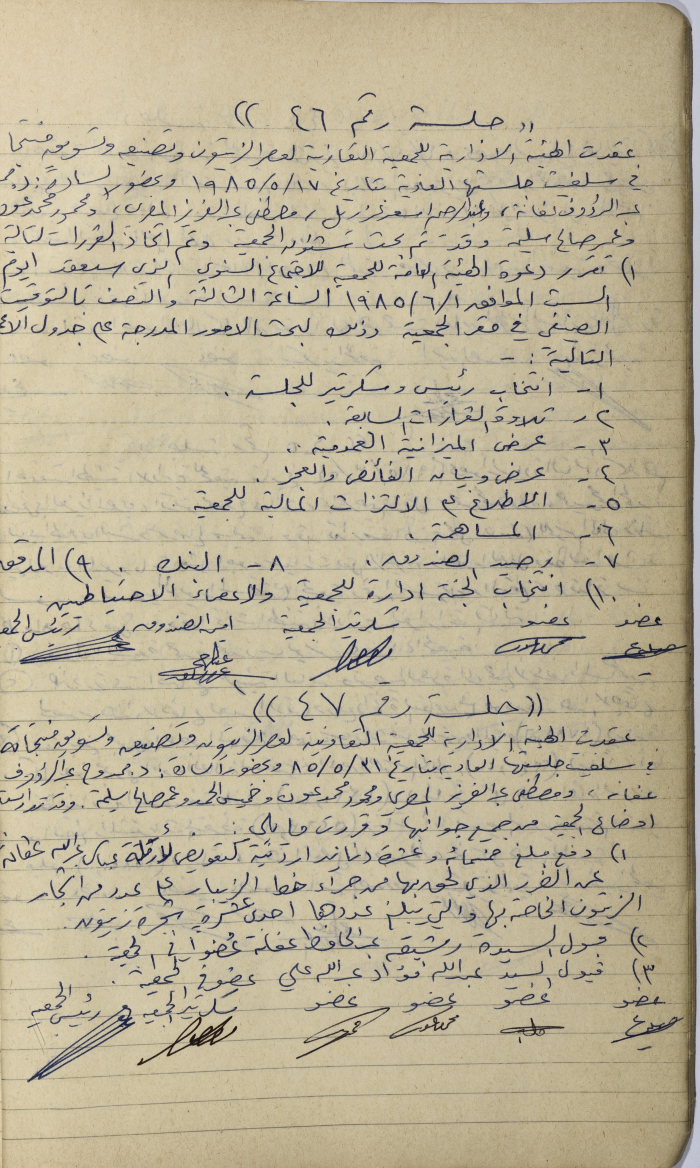 (( جلسة رقم ٤٦ ))
عقدت الهيئة الادارية للجمعية التعاونية لعصر الزيتون وتصنيعه وتسويق منتجا
في سلفيت جلستها العادية بتاريخ ١٩٨٥/٥/١٧ وحضور السادة :
عبد الرؤوف عفانة ، مصطفى عبد العزيز المصري ، ومحمود محمد عود
وعمر صالح سليمة وقد تم بحث شئون الجمعية وتم اتخاذ القرارات التالية
١) تقرر دعوة الهيئة العامة للجمعية للاجتماع السنوي الذي سيعقد اليوم
السبت الموافق ١٩٨٥/٦/١ الساعة الثالثة والنصف بالتوقيت
الصيفي في مقر الجمعية وذلك لبحث الامور المدرجة على جدول الاع
التالية : -
١- انتخاب رئيس وسكرتير للجلسة .
٢- تلاوة القرارات السابقة .
٣- عرض الميزانية العمومية .
٤- عرض وبيان الفائض والعجز .
٥- الاطلاع على الالتزامات المالية للجمعية
٦- المساهمة .
٧- رصيد الصندوق . ٨- البنك . ٩) المدقق
١٠) انتخاب لجنة ادارة للجمعية والاعضاء الاحتياطيين
عضو عضو سكرتير الجمعية امين الصندوق رئيس الجمع
(( جلسة رقم ٤٧ ))
عقدت الهيئة الادارية للجمعية التعاونية لعصر الزيتون وتصنيعه وتسويق منتجاته
في سلفيت جلستها العادية بتاريخ ٨٥/٥/٣١ وحضور السادة : د. ممدوح عبد الرؤوف
عفانه ، ومصطفى عبد العزيز المصري ومحمود محمد عودة وخميس الحمد وعمر صالح سليمة . وقد تدارست
اوضاع الجمعية من جميع جوانبها وقررت ما يلي :
١) دفع مبلغ خمسمائة وعشرة دنانير اردنية كتعويض لأرملة عباس عبد الله عفانة
عن الضرر الذي لحق بها من جراء خط الزيبار على عدد من اشجار
الزيتون الخاصة بها والتي يبلغ عددها احدى عشرة شجرة زيتون .
٢) قبول السيدة رشيقه عبد الحافظ عفانة عضوا في الجمعية .
٣) قبول السيد عبد الله فؤاد عبد الله علي عضو في الجمعية .
عضو عضو عضو عضو سكرتير الجمعية رئيس الجمعيه